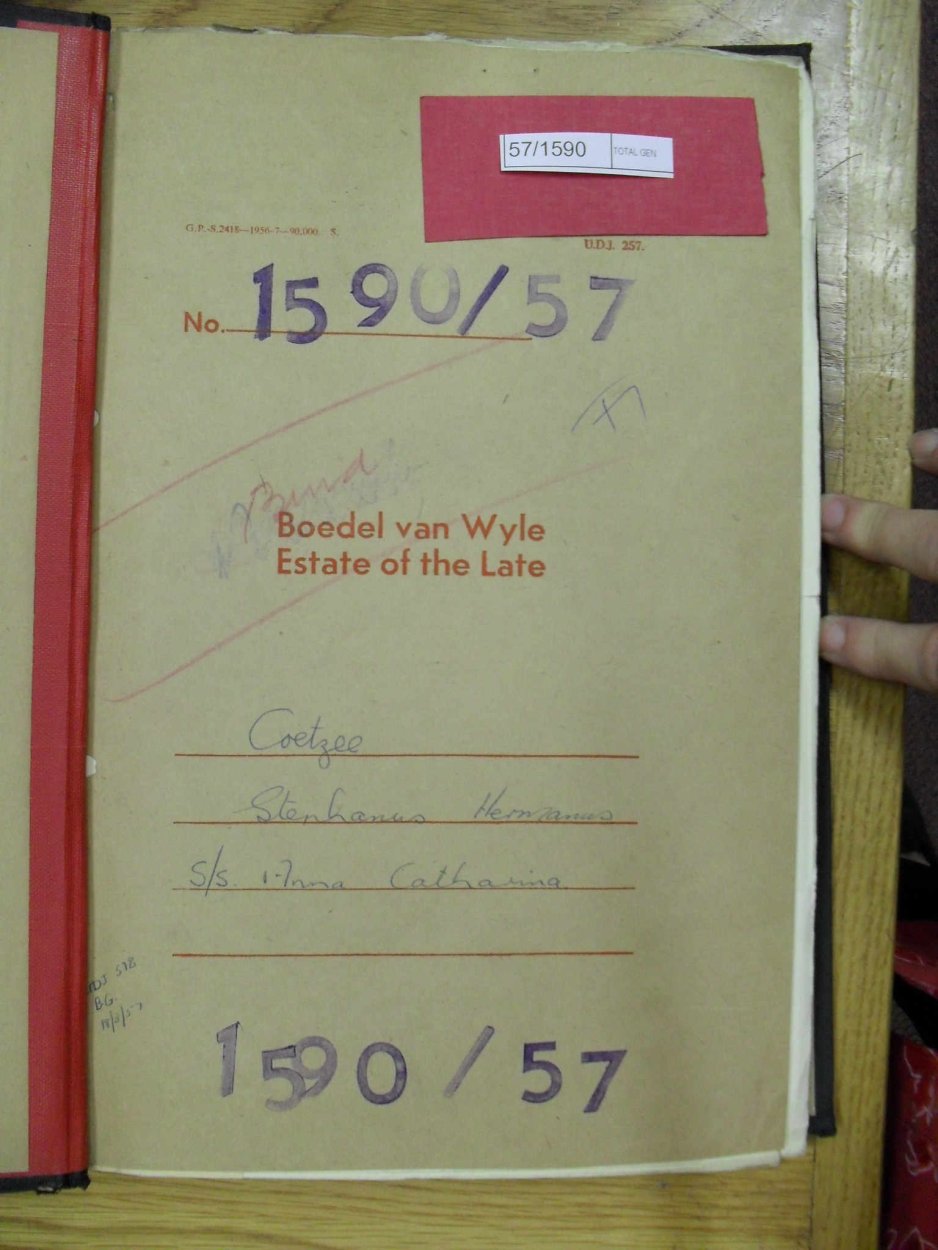 57/1590 TOTAL GEN
G.P.-S.2418—1956-7—90,000. S.
U.D.J. 257.
No. 1590/57
Bind
Boedel van Wyle
Estate of the Late
Coetzee
Stephanus Hermanus
S/S. Anna Catharina
578
B.G.
1590/57